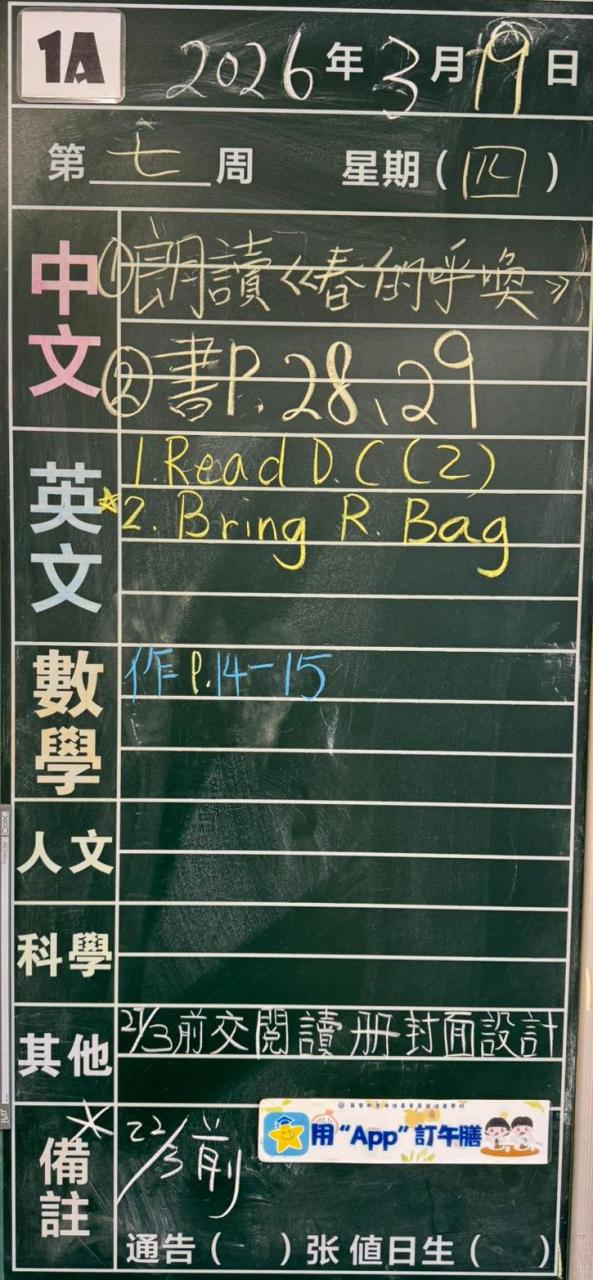 1A 2026年3月19日
第七周 星期(四)
中文
①朗讀《春的呼喚》
②書P.28、29
英文
1.Read D.C(2)
☆2. Bring R. Bag
數學
作P.14-15
人文
科學
其他
27/3前交閱讀册封面設計
備註
*22/3前
用“App”訂午膳
通告( )张 值日生( )